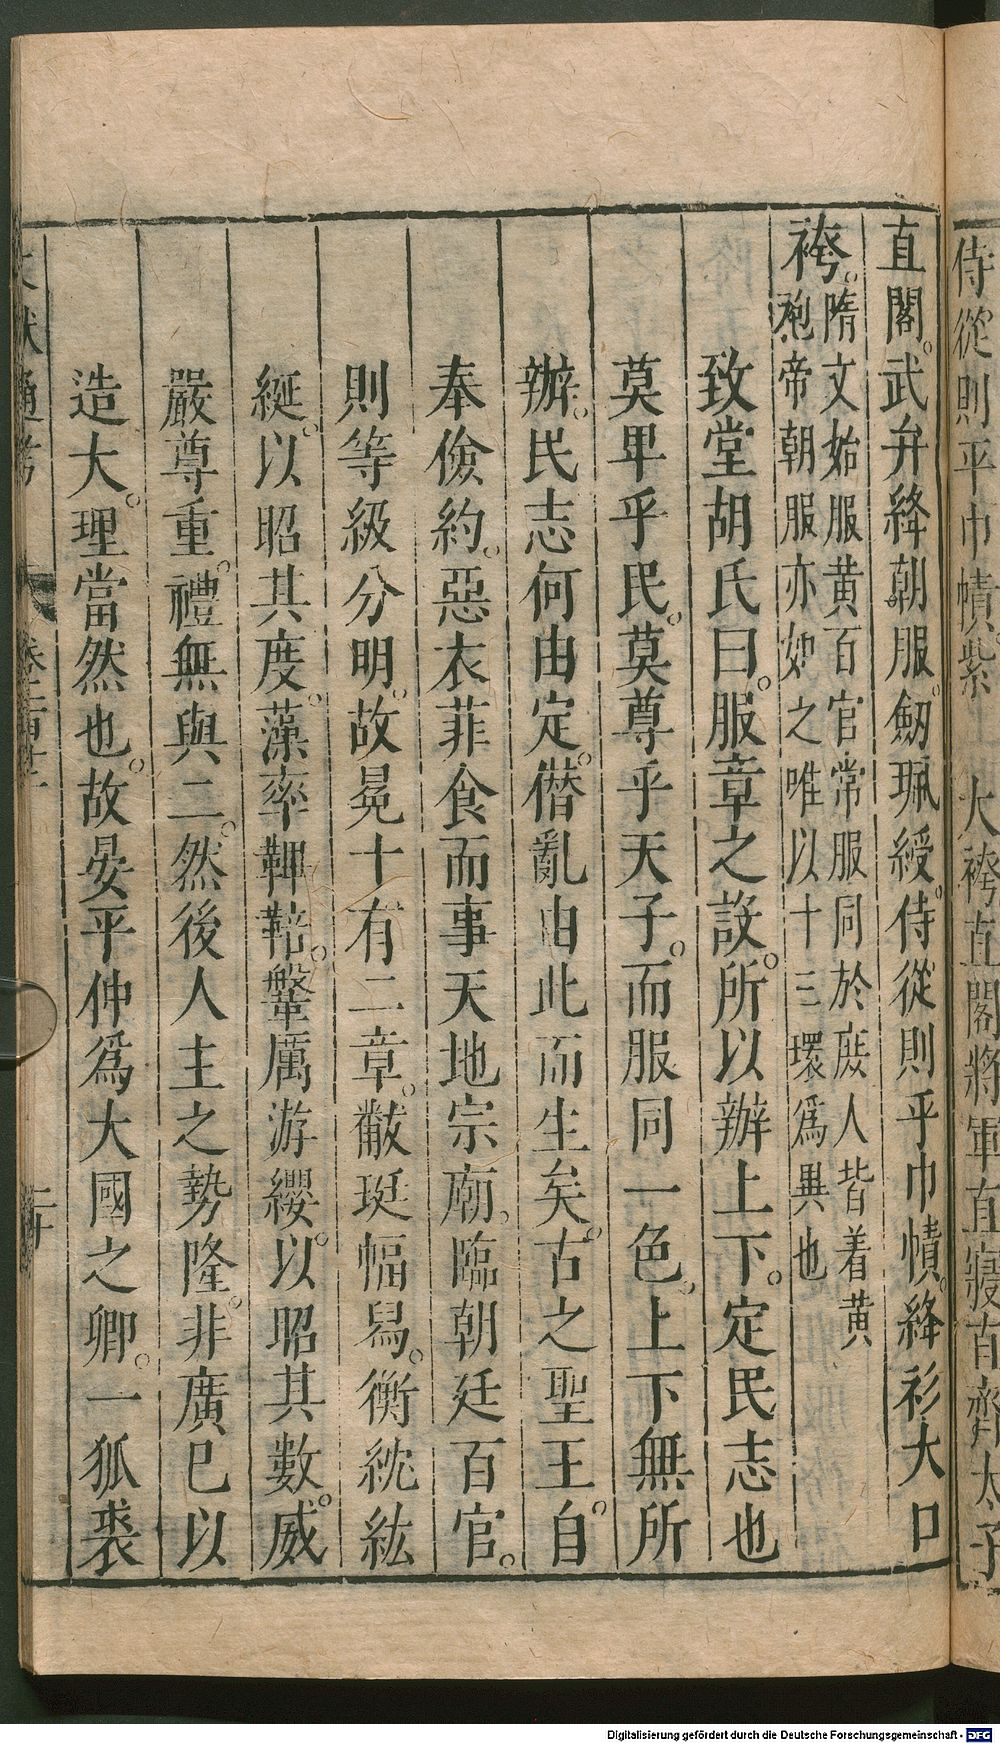 侍從則平巾幘紫
大袴直閣將軍直寢直齋太子
直閣。武弁絳朝服。劒珮綬。侍從則平巾幘。絳衫大口
袴。
隋文始服黄百官常服同於庻人皆着黄
袍帝朝服亦如之唯以十三環爲異也
致堂胡氏曰。服章之設。所以辦上下。定民志也
莫卑乎民。莫尊乎天子。而服同一色。上下無所
辦。民志何由定。僣亂由此而生矣。古之聖王。自
奉儉約。惡衣菲食而事天地宗廟。臨朝廷百官。
則等級分明。故冕十有二章。黻珽幅舄。衡紞紘
綖。以昭其度。藻率鞞鞛。鞶厲游纓。以昭其數。威
嚴尊重。禮無與二。然後人主之勢隆。非廣巳以
造大。理當然也。故晏平仲爲大國之卿。一狐裘
文獻通考
二十
Digitalisierung gefördert durch die Deutsche Forschungsgemeinschaft - DFG